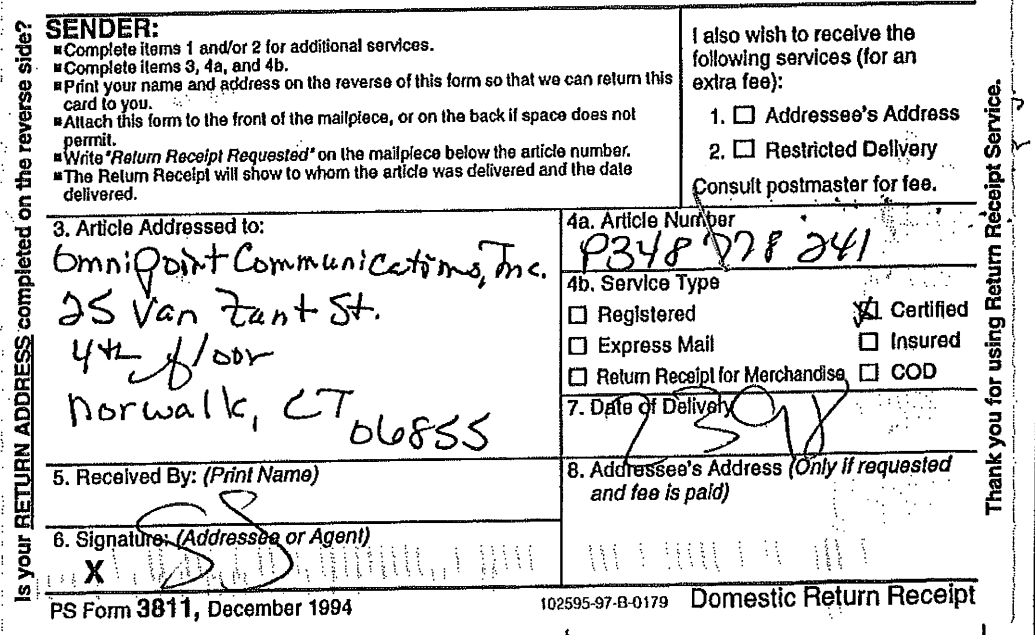 Is your RETURN ADDRESS completed on the reverse side?
SENDER:
■Complete items 1 and/or 2 for additional services.
■Complete items 3, 4a, and 4b.
■Print your name and address on the reverse of this form so that we can return this
card to you.
■Attach this form to the front of the mailpiece, or on the back if space does not
permit.
■Write "Return Receipt Requested" on the mailpiece below the article number.
■The Return Receipt will show to whom the article was delivered and the date
delivered.
I also wish to receive the
following services (for an
extra fee):
1. ☐ Addressee's Address
2. ☐ Restricted Delivery
Consult postmaster for fee.
3. Article Addressed to:
Omnipoint Communications, Inc.
25 Van Zant St.
4th floor
Norwalk, CT
06855
4a. Article Number
P348 778 241
4b. Service Type
☐ Registered ☒ Certified
☐ Express Mail ☐ Insured
☐ Return Receipt for Merchandise ☐ COD
7. Date of Delivery
5. Received By: (Print Name)
8. Addressee's Address (Only if requested
and fee is paid)
6. Signature: (Addressee or Agent)
X
PS Form 3811, December 1994
102595-97-B-0179 Domestic Return Receipt
Thank you for using Return Receipt Service.